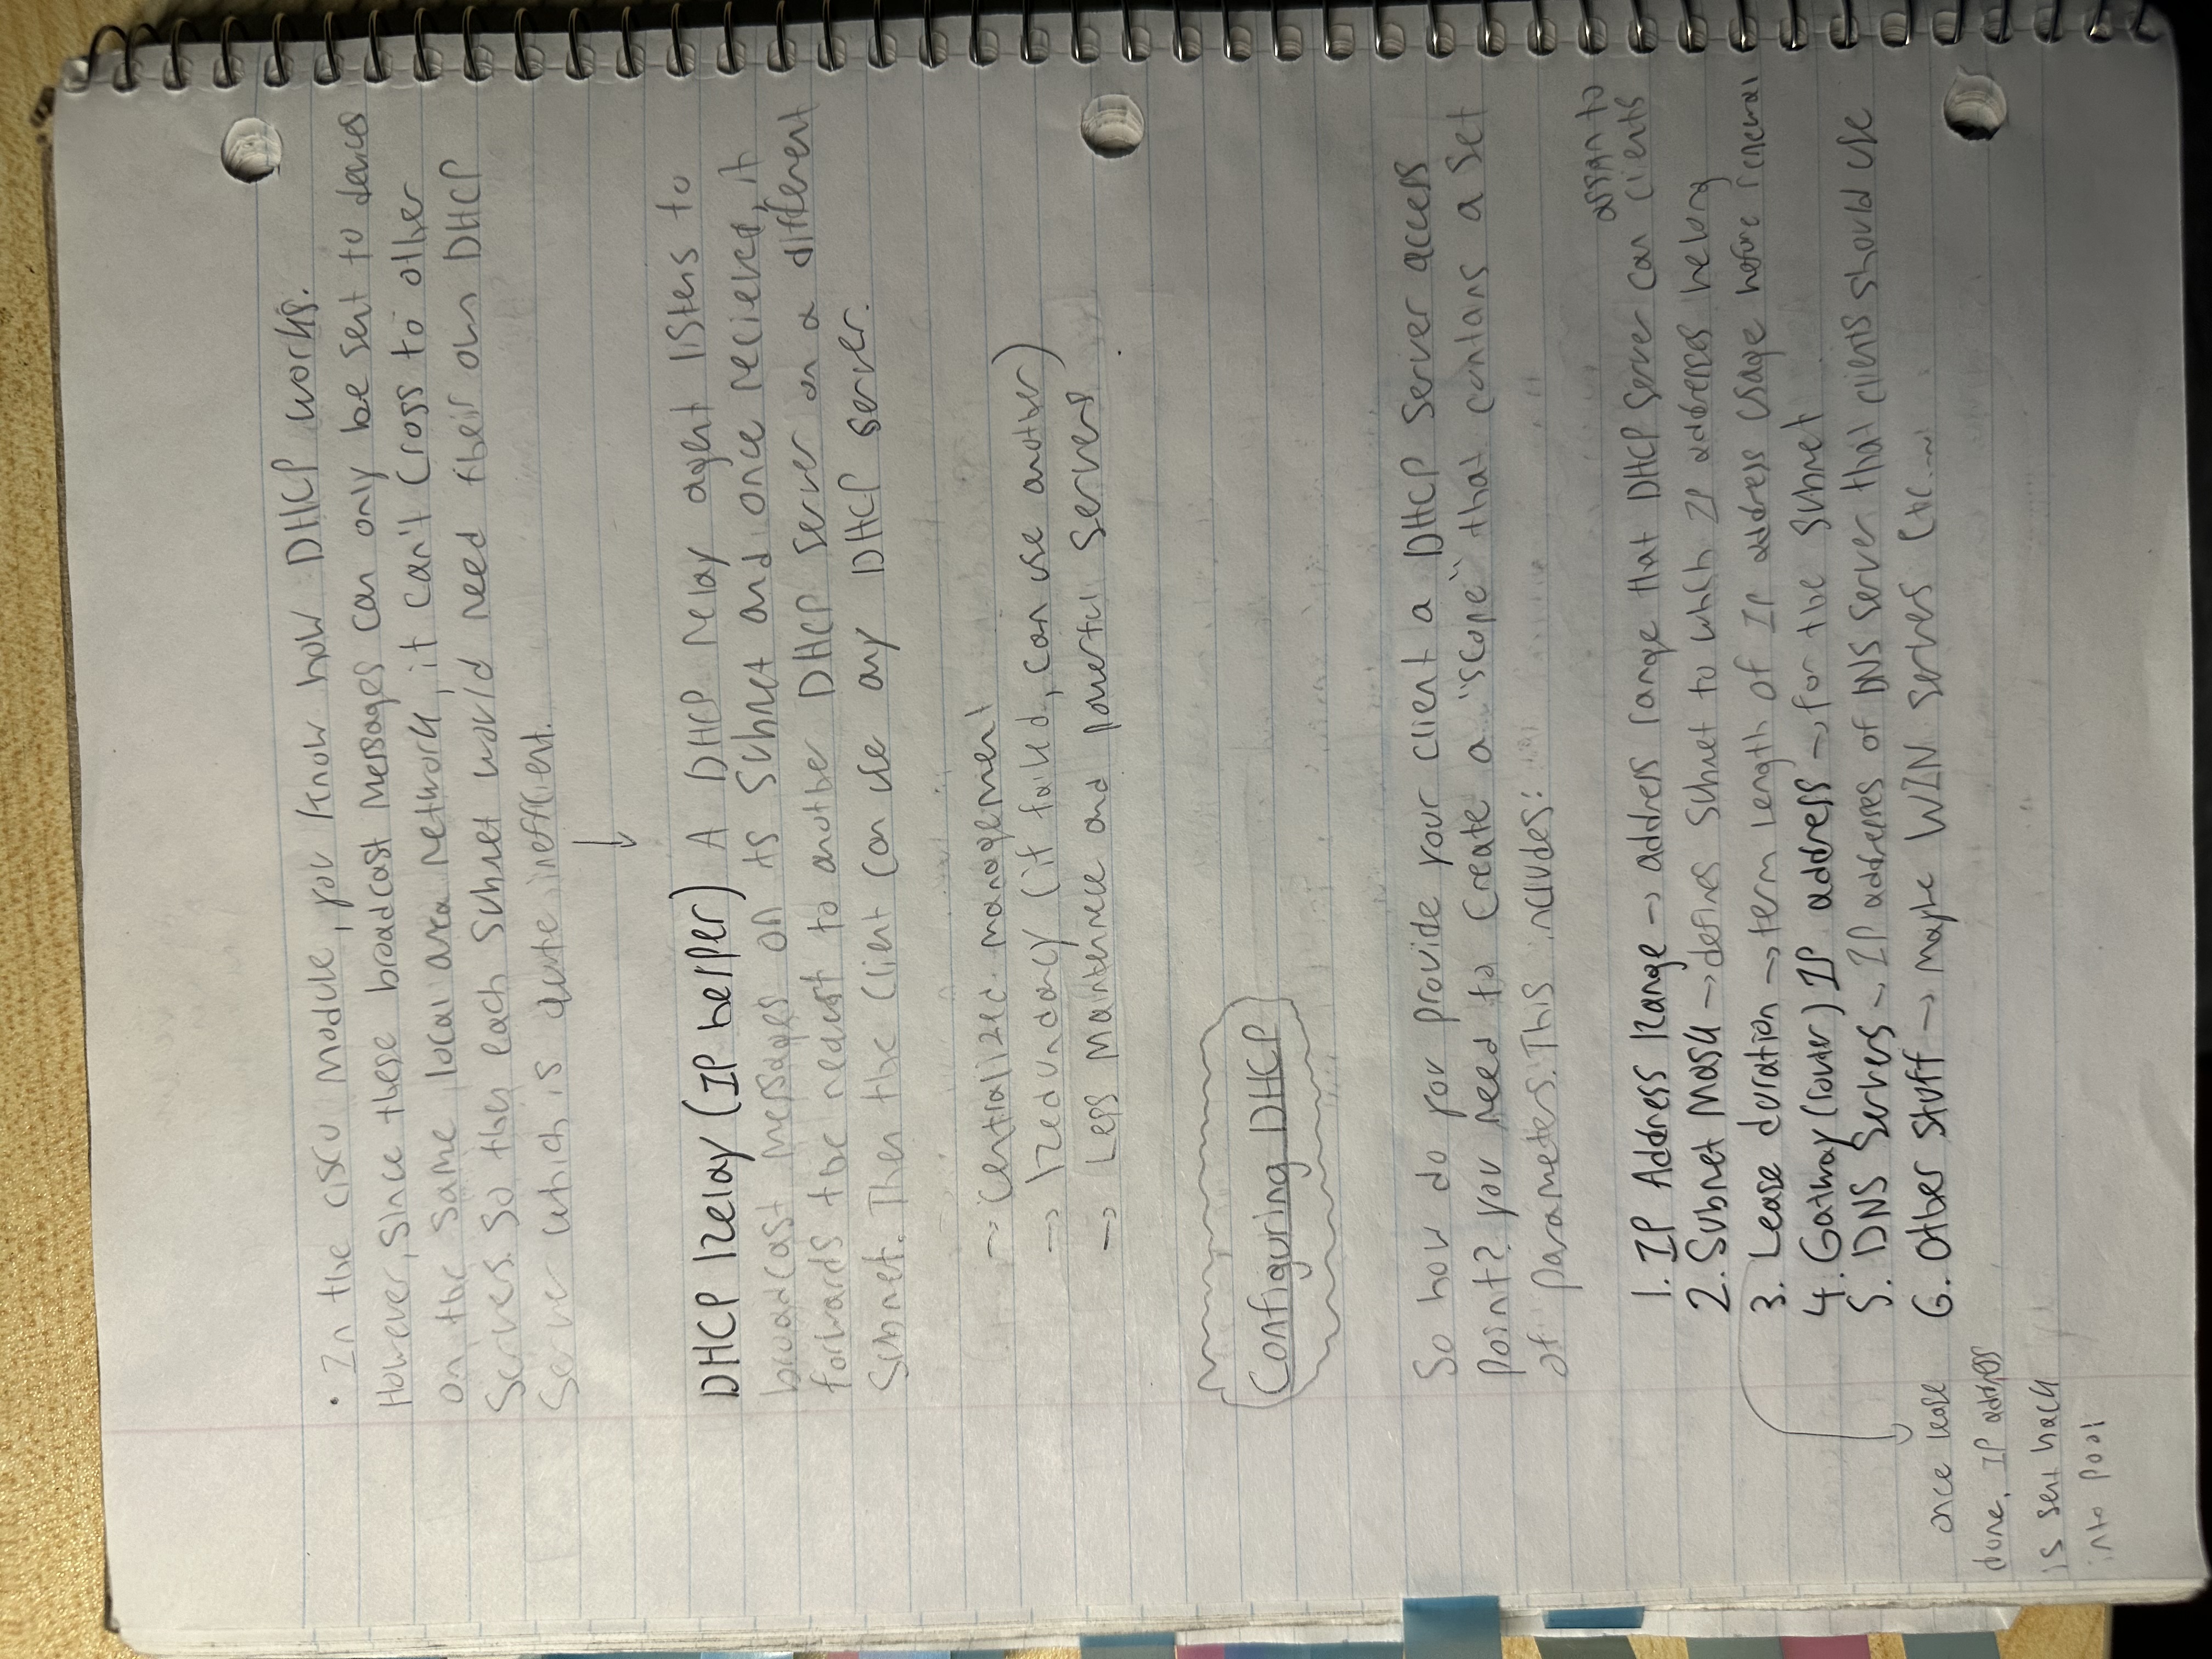 • In the cisco module, you know how DHCP works.
However, since these broadcast messages can only be sent to devices
on the same local area network, it can't cross to other
servers. So then each subnet would need their own DHCP
server which is quite inefficient.
DHCP Relay (IP helper) A DHCP relay agent listens to
broadcast messages on its subnet and once recieved, it
forwards the request to another DHCP server on a different
subnet. Then the client can use any DHCP server.
→ Centralized management
→ Redundancy (if failed, can use another)
→ Less maintenece and powerful servers
Configuring DHCP
So how do you provide your client a DHCP server access
point? you need to create a "scope" that contains a set
of parameters. This includes:
assign to
1. IP Address Range → address range that DHCP server can clients
2. Subnet Mask → defines subnet to which IP addresses belong
3. Lease duration → term length of IP address usage before renewal
4. Gatway (router) IP address → for the subnet
5. DNS Servers → IP addresses of DNS server that clients should use
6. Other stuff → maybe WIN serves etc....
once lease
done, IP address
is sent back
into pool